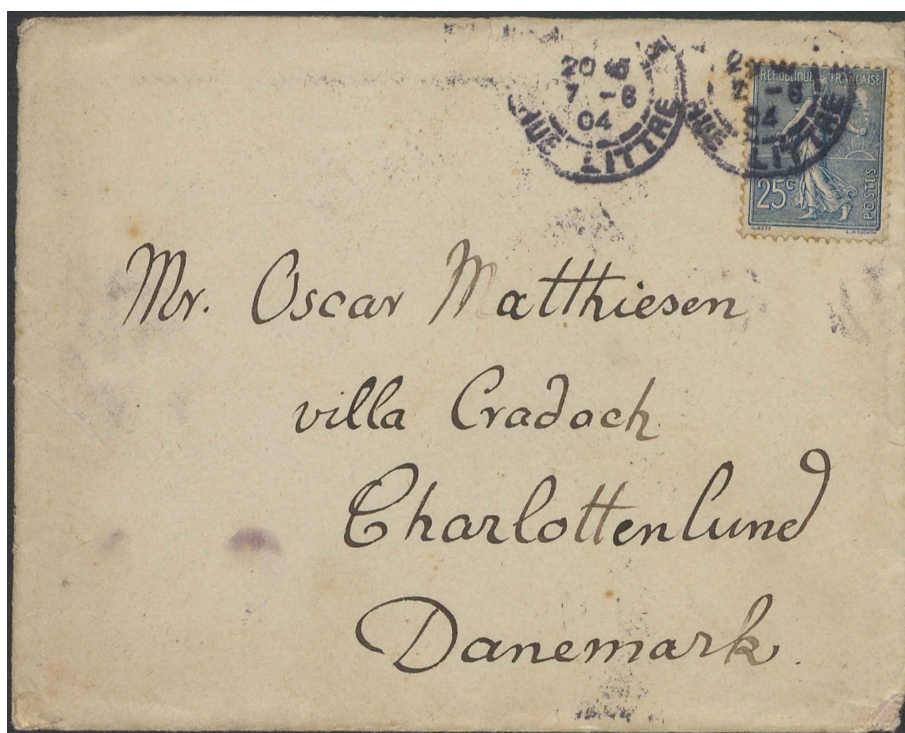 20
7 - 6
04
RUE LITTRE
7 - 6
04
RUE LITTRE
REPUBLIQUE FRANÇAISE
25c
POSTES
Mr. Oscar Matthiesen
villa Cradock
Charlottenlund
Danemark.